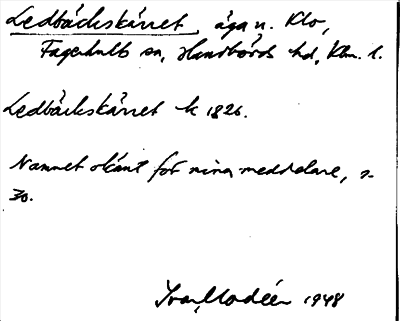 Ledbäckskärret, äga u. Klo,
Fagerhults sn, Handbörds hd, Klm. l.
Ledbäckskärret k 1826.
Namnet okänt för mina meddelare, 
30.
Ivar Modéer 1948